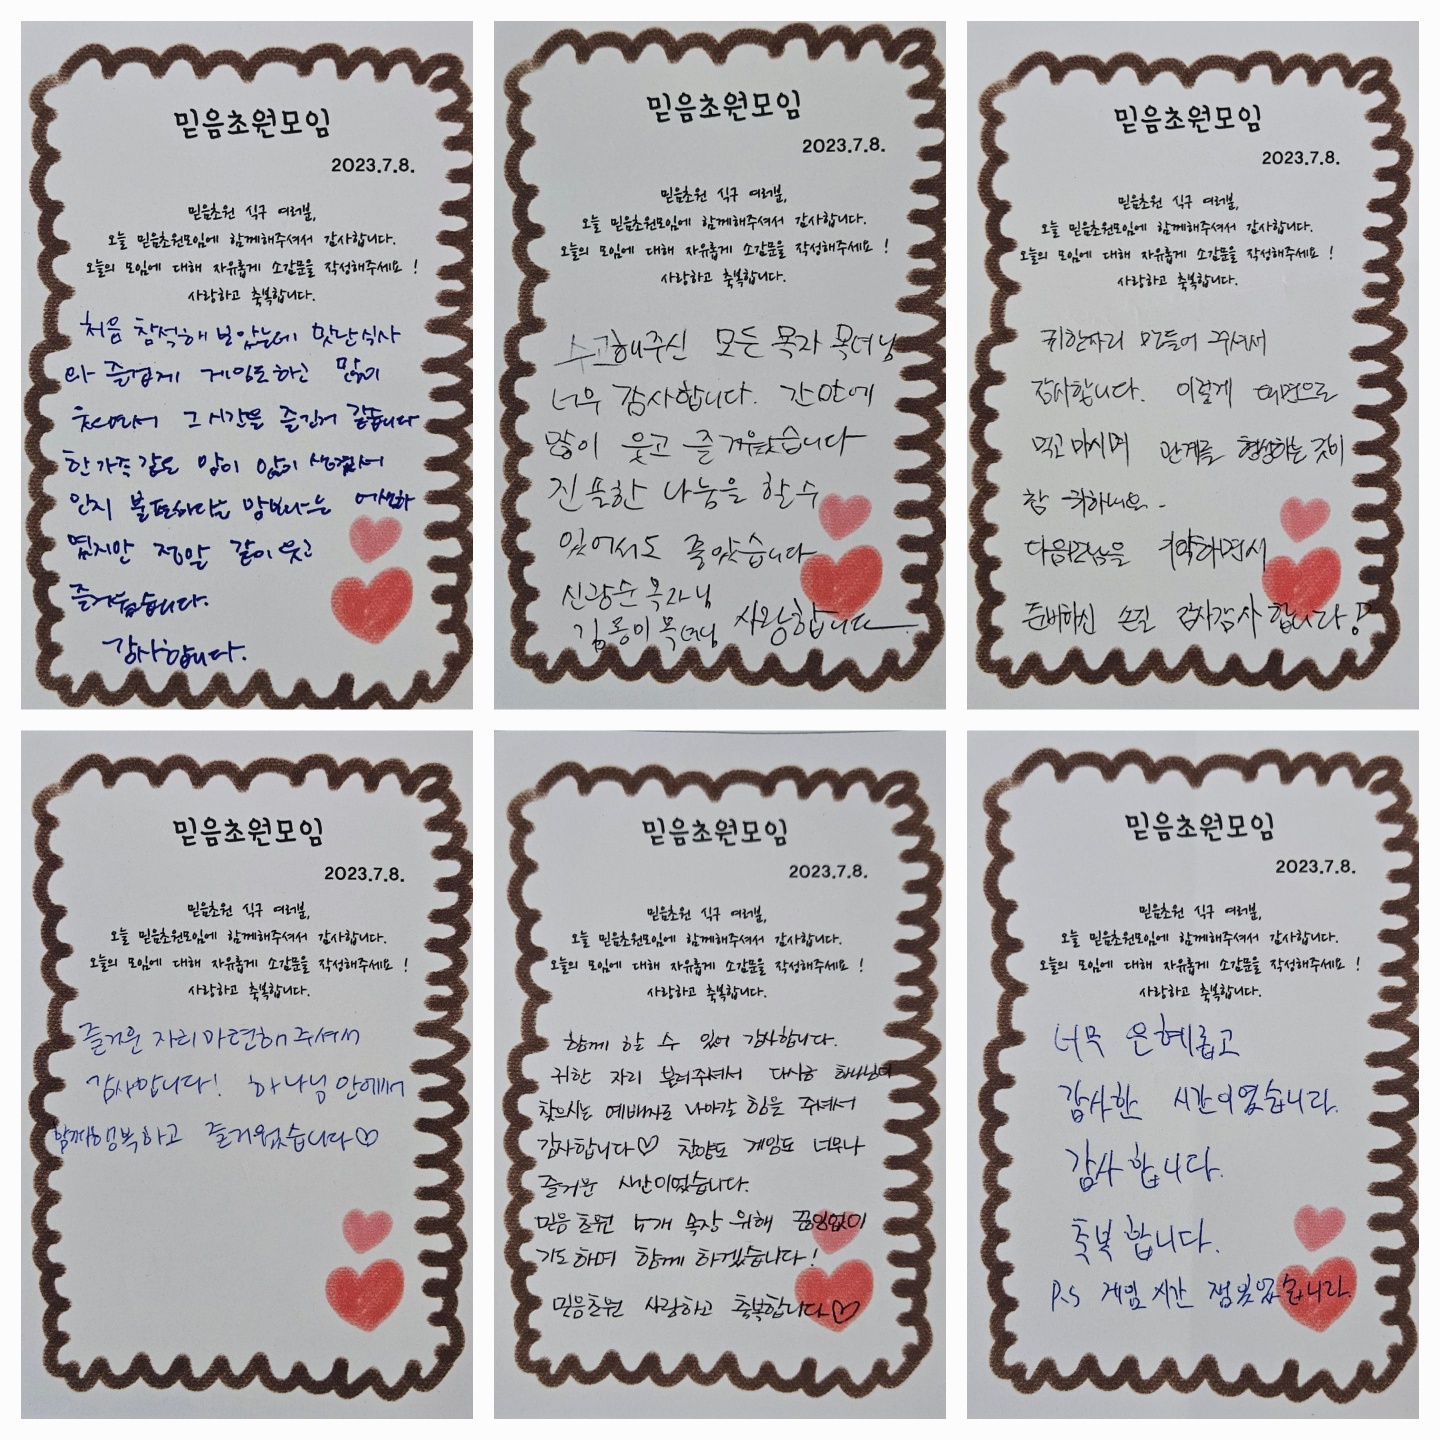 믿음초원모임
2023.7.8.
믿음초원 식구 여러분,
오늘 믿음초원모임에 함께해주셔서 감사합니다.
오늘의 모임에 대해 자유롭게 소감문을 작성해주세요 !
사랑하고 축복합니다.
처음 참석해 보았는데 맛난식사
와 즐겁게 게임도하고 많이
웃으면서 그 시간을 즐긴거 같습니다
한가족 같은 맘이 많이 생겼어
인지 불편하다는
정말 같이 웃고
즐거웠습니다.
감사합니다.
믿음초원모임
2023.7.8.
믿음초원 식구 여러분,
오늘 믿음초원모임에 함께해주셔서 감사합니다.
오늘의 모임에 대해 자유롭게 소감문을 작성해주세요 !
사랑하고 축복합니다.
수고해주신 모든 목자 목녀님
너무 감사합니다. 간만에
많이 웃고 즐거웠습니다
진솔한 나눔을 할수
있어서도 좋았습니다
신광순 목자님
목녀님 사랑합니다
믿음초원모임
2023.7.8.
믿음초원 식구 여러분,
오늘 믿음초원모임에 함께해주셔서 감사합니다.
오늘의 모임에 대해 자유롭게 소감문을 작성해주세요 !
사랑하고 축복합니다.
귀한자리 만들어 주셔서
감사합니다. 이렇게 대면으로
먹고 마시며 관계를 형성하는 것이
참 귀하네요.
다음모임을 기약하면서
준비하신 손길 감사감사합니다!
믿음초원모임
2023.7.8.
믿음초원 식구 여러분,
오늘 믿음초원모임에 함께해주셔서 감사합니다.
오늘의 모임에 대해 자유롭게 소감문을 작성해주세요 !
사랑하고 축복합니다.
즐거운 자리 마련해 주셔서
감사합니다! 하나님 안에서
함께 행복하고 즐거웠습니다♡
믿음초원모임
2023.7.8.
믿음초원 식구 여러분,
오늘 믿음초원모임에 함께해주셔서 감사합니다.
오늘의 모임에 대해 자유롭게 소감문을 작성해주세요 !
사랑하고 축복합니다.
함께 할 수 있어 감사합니다.
귀한 자리 불러주셔서 다시금 하나님이
찾으시는 예배자로 나아갈 힘을 주셔서
감사합니다♡ 찬양도 게임도 너무나
즐거운 시간이었습니다.
믿음 초원 5개 목장 위해 끊임없이
기도하며 함께 하겠습니다!
믿음초원 사랑하고 축복합니다♡
믿음초원모임
2023.7.8.
믿음초원 식구 여러분,
오늘 믿음초원모임에 함께해주셔서 감사합니다.
오늘의 모임에 대해 자유롭게 소감문을 작성해주세요 !
사랑하고 축복합니다.
너무 은혜롭고
감사한 시간이었습니다.
감사합니다.
축복합니다.
P.S 게임 시간 잼있었습니다.